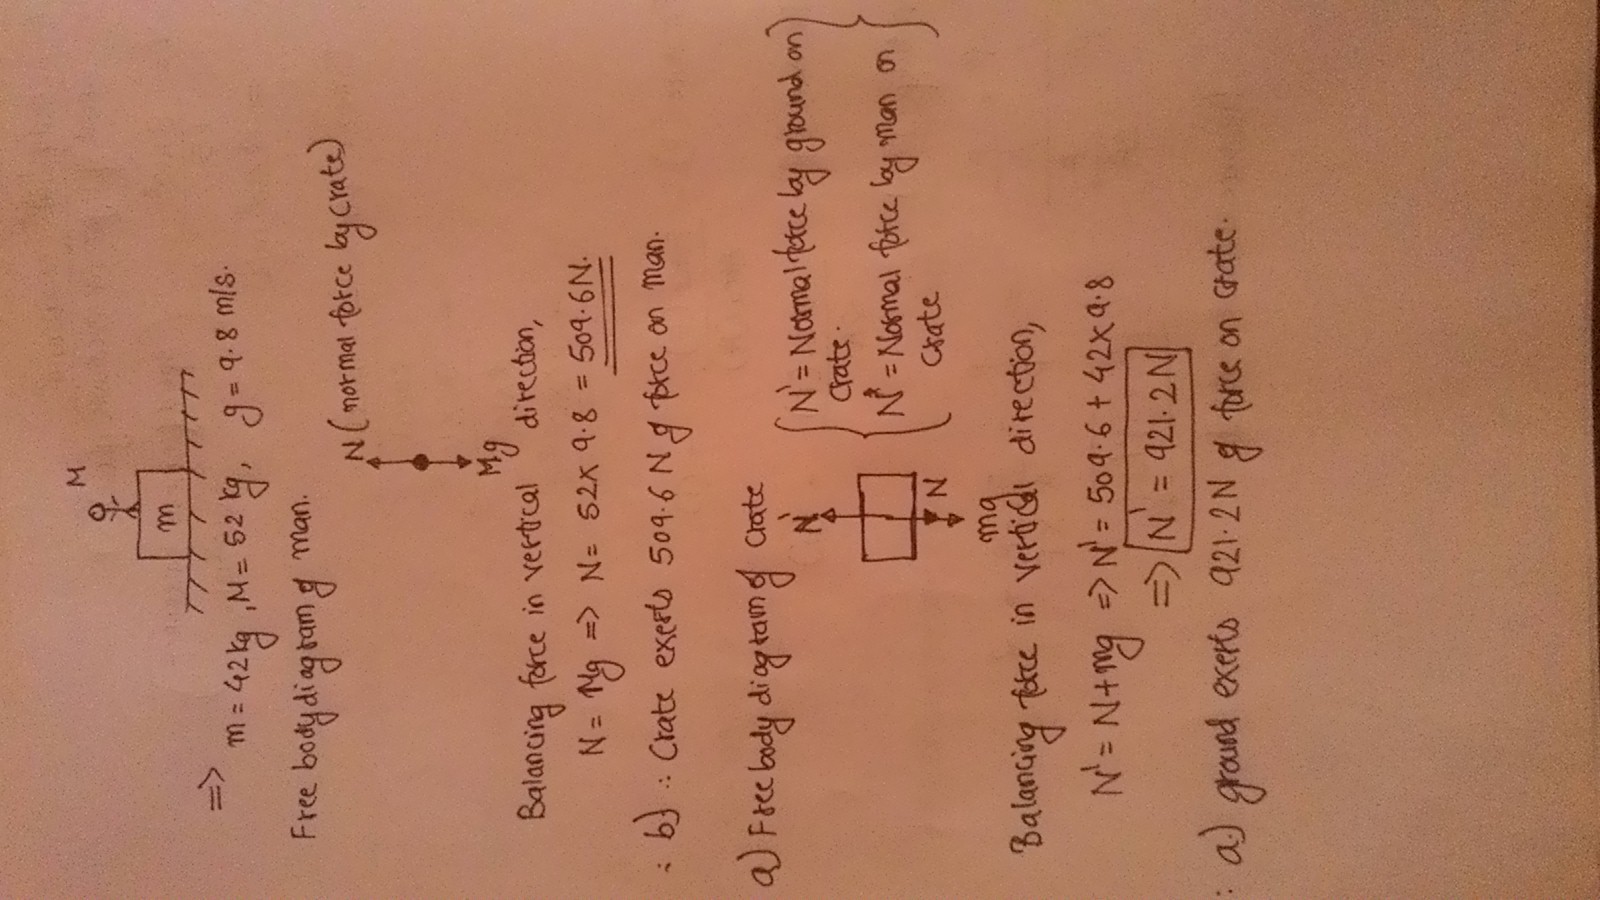 M
m
=> m = 42kg, M = 52 kg, g = 9.8 m/s.
Free body diagram of man.
N (normal force by crate)
Mg
Balancing force in vertical direction,
N = Mg => N = 52 x 9.8 = 509.6 N.
∴ b) ∴ Crate exerts 509.6 N of force on man.
a) Free body diagram of crate
N'
N
mg
N' = Normal force by ground on
crate.
N = Normal force by man on
crate
Balancing force in vertical direction,
N' = N + mg => N' = 509.6 + 42 x 9.8
=> N' = 921.2 N
∴ a) ground exerts 921.2 N of force on crate.